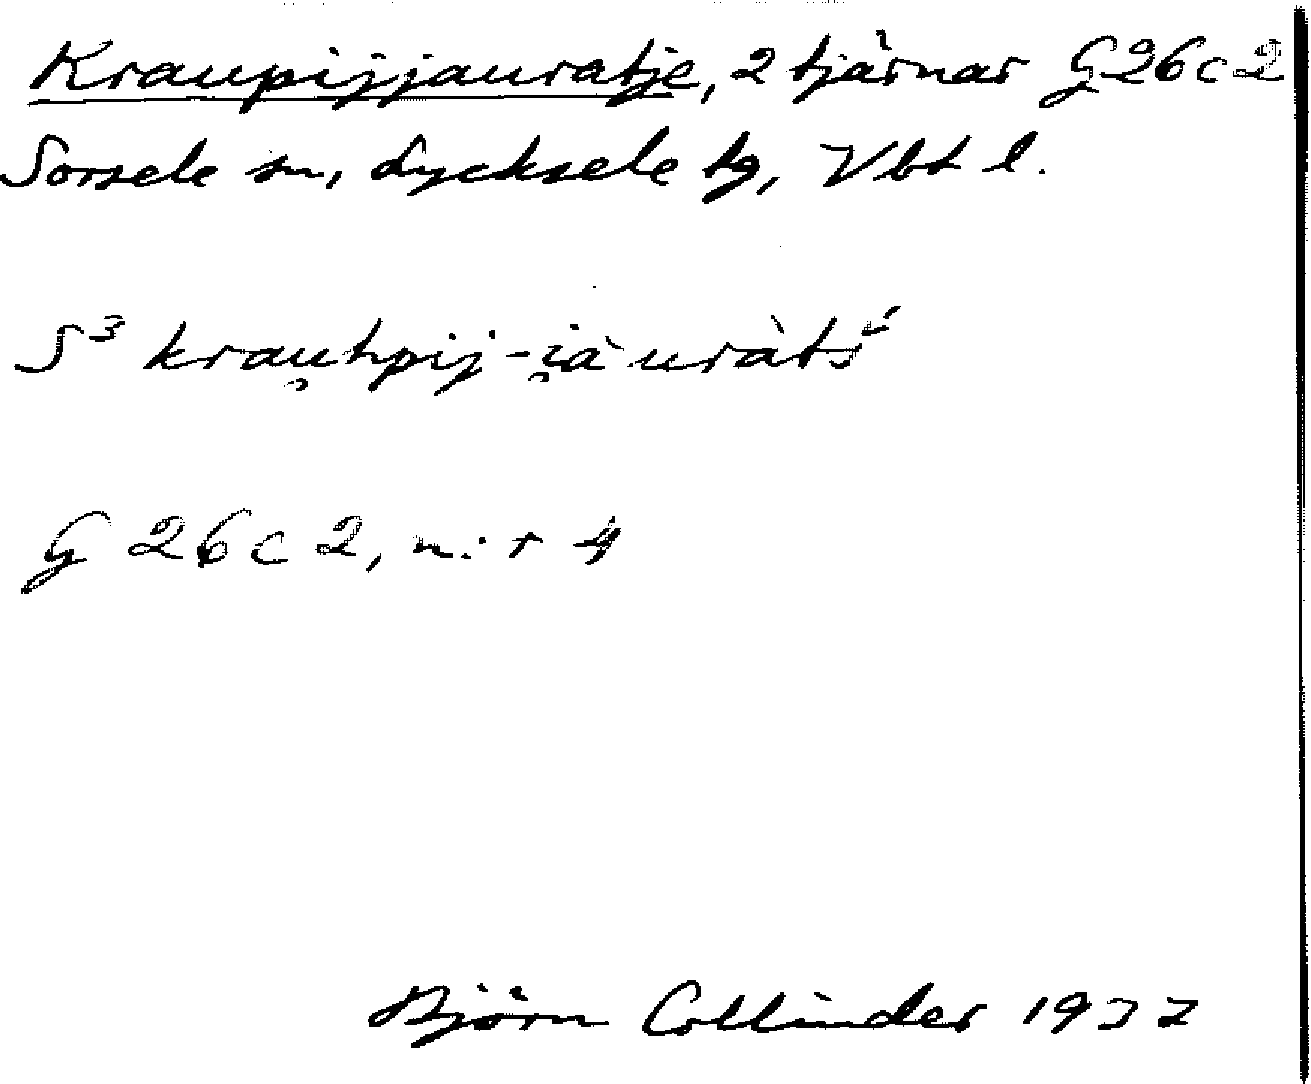 Kraupijjauratje, 2 tjärnar G26c2
Sorsele sn, Lycksele tg, Vbt l.
S³ krau̯hpij-i̯àuràtś
G 26 c 2, n:r 4
Björn Collinder 1937